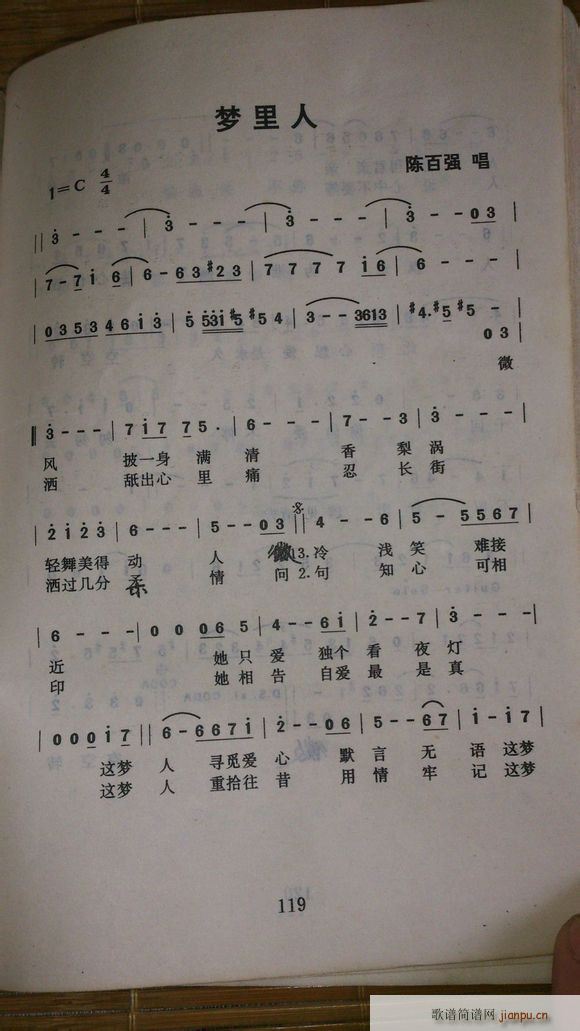 梦里人
陈百强 唱
1=C 4/4
‖ 3̇ - - - | 3̇ - - - | 3̇ - - - | 3̇ - - 0 3̇ |
| 7 - 7 i 6 | 6 - 6 3 #2 3 | 7 7 7 7 i 6 | 6 - - - |
| 0 3 5 3 4 6 i 3̇ |
0 3
微
‖ 3̇ - - - | 7 i 7 7 5 . | 6 - - - | 7 - - 3 | 3̇ - - - |
风 披一身 满 清 香 梨 涡
洒 舐出心 里 痛 忍 长 街
| 2̇ i 2̇ 3̇ | 6 - - - | 5 - - 0 3 ‖ 4 - - 6 | 5 - 5 5 6 7 |
轻舞美得 动 人 微 3.冷 浅 笑 难接
洒过几分 柔 情 问 2.句 知 心 可相
| 6 - - - | 0 0 0 6 5 | 4 - - 6 i | 2̇ - - 7 | 3̇ - - - |
近 她 只 爱 独个 看 夜 灯
印 她 相 告 自爱 最 是 真
| 0 0 0 i 7 ‖ 6 - 6 6 7 i | 2̇ - - 0 6 | 5 - - 6 7 | i - i 7 |
这梦 人 寻觅爱 心 默 言 无 语 这梦
这梦 人 重拾往 昔 用 情 牢 记 这梦
119
歌谱简谱网
jianpu.cn